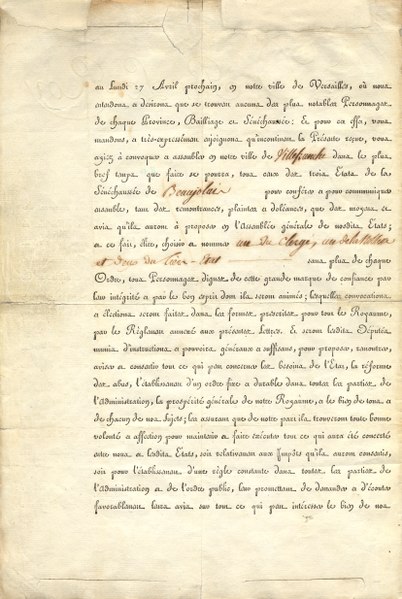 au Lundi 27 Avril prochain, en notre ville de Versailles, où nous
entendons & desirons que se trouvent aucuns des plus notables Personnages
de chaque Province, Bailliage & Sénéchaussée : Et pour ces effet, vous
mandons, & très-expressément enjoignons, qu'incontinent la Présente reçue, vous
ayiez à convoquer & assembler en notre ville de Villefranche dans le plus
bref temps que faire se pourra, tous ceux des trois Etats de la
Sénéchaussée de Beaujolais pour conférer & pour communiquer
ensemble, tant des remontrances, plaintes & doléances, que des moyens &
avis qu'ils auront à proposer en l'Assemblée générale de nosdits Etats ;
& ce fait, élire, choisir & nommer un du Clergé, un de la Noblesse
et deux du Tiers-Etat sans plus de chaque
Ordre, tous Personnages dignes de cette grande marque de confiance par
leur intégrité & par le bon esprit dont ils seront animés ; lesquelles convocations
& élections seront faites dans les formes prescrites pour tout le Royaume,
par le Réglement annexé aux présentes Lettres. Et seront lesdits Députés
munis d'instructions & pouvoirs généraux & suffisans, pour proposer, remontrer,
aviser & consentir tout ce qui peut concerner les besoins de l'Etat, la réforme
des abus, l'établissement d'un ordre fixe & durable dans toutes les parties de
l'Administration, la prospérité générale de notre Royaume, & le bien de tous &
de chacun de nos Sujets ; les assurant que de notre part ils trouveront toute bonne
volonté & affection pour maintenir & faire exécuter tout ce qui aura été concerté
entre nous & lesdits Etats, soit relativement aux Impôts qu'ils auront consentis,
soit pour l'établissement d'une règle constante dans toutes les parties de
l'Administration & de l'ordre public, leur promettant de demander & d'écouter
favorablement leurs avis sur tout ce qui peut intéresser le bien de nos